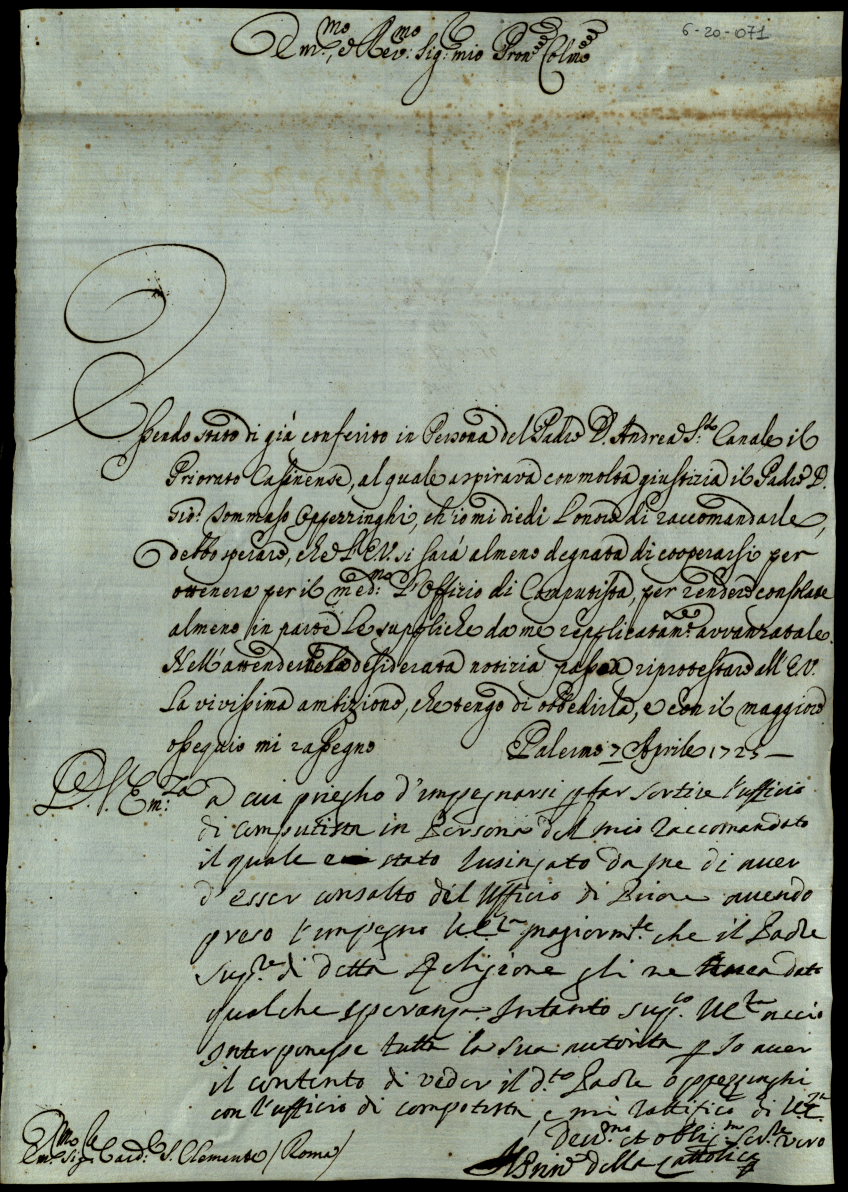 6-20-071
Em.mo, e Rev.mo Sig: mio Pron Colmo
Essendo stato di già conferito in Persona del Padre D. Andrea S.to Canale il
Priorato Casinense, al quale aspirava con molta giustizia il Padre D.
Gio: Tommaso Opperzinghi, ch'io mi diedi l'onore di raccomandarle,
debbo sperare, che l'E.V. si sarà almeno degnata di cooperarsi per
ottenere per il med.mo l'Offizio di Computista, per rendere consolate
almeno in parte le suppliche da me replicatam.te avvanzatale.
Nell'attendere la desiderata notizia passo a riprotestare all'E.V.
la vivissima ambizione, che tengo di obbedirla, e con il maggiore
ossequio mi rassegno Palermo 7 Aprile 1725
D. V. Em.za a cui priegho d'impegnarsi p far sortire l'ufficio
di computista in Persona del mio raccomandato
il quale è stato lusingato da me di aver
d'esser consolto del Ufficio di Priore avendo
preso l'impegno V.E.za magiorm.te che il Padre
Sup.re di detta Religione gli ne data
qualche speranza. Intanto sup.co V.E.za acciò
interponesse tutta la sua autorità p Io aver
il contento di veder il d.to Padre Opperzinghi
con l'ufficio di computista, e mi ratifico di V.E.za
Em.mo Sig.re Card.le S. Clemente (Roma)
Dev.mo et obli.mo Ser.re vero
della Cattolica